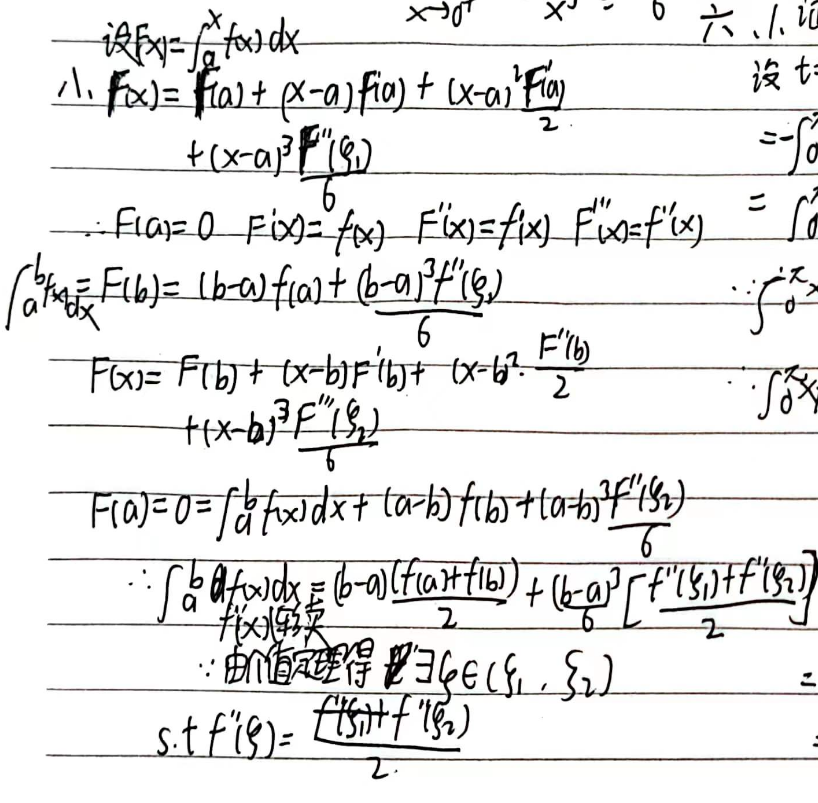 x→0⁺ x³ = 6 六、1. 证
设F(x)=∫ₐˣ f(x) dx
设 t=
八、F(x) = F(a) + (x-a) F'(a) + (x-a)² F''(a)/2
+ (x-a)³ F'''(ξ₁)/6
=-∫₀
∴ F(a)=0 F'(x)=f(x) F''(x)=f'(x) F'''(x)=f''(x)
= ∫₀
∫ₐᵇ f(x)dx = F(b) = (b-a) f(a) + (b-a)³ f''(ξ₁)/6
∵ ∫₀^π x
F(x) = F(b) + (x-b)F'(b) + (x-b)² · F''(b)/2
∴ ∫₀^π x
+ (x-b)³ F'''(ξ₂)/6
F(a)=0=∫ₐᵇ f(x)dx + (a-b) f(b) + (a-b)³ f''(ξ₂)/6
∴ ∫ₐᵇ f(x)dx = (b-a) (f(a)+f(b))/2 + (b-a)³/6 [ (f''(ξ₁)+f''(ξ₂))/2 ]
f''(x)连续
∵ 由介值定理得 ∃ξ∈(ξ₁, ξ₂)
=
s.t f''(ξ) = (f''(ξ₁)+f''(ξ₂))/2.